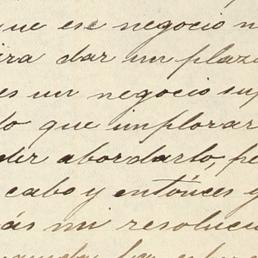 que ese negocio n
ira dar un plazo
es un negocio sup
lo que implorar
dir abordarlo, pe
cabo y entónces y
ás mi resoluci